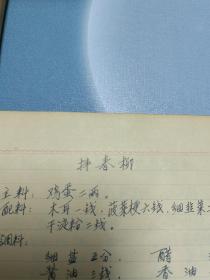 拌春柳
主料：鸡蛋二两。
配料：木耳一钱，菠菜梗六钱，细韭菜二
干淀粉二钱。
调料：
细盐五分， 醋
酱油三钱， 香油